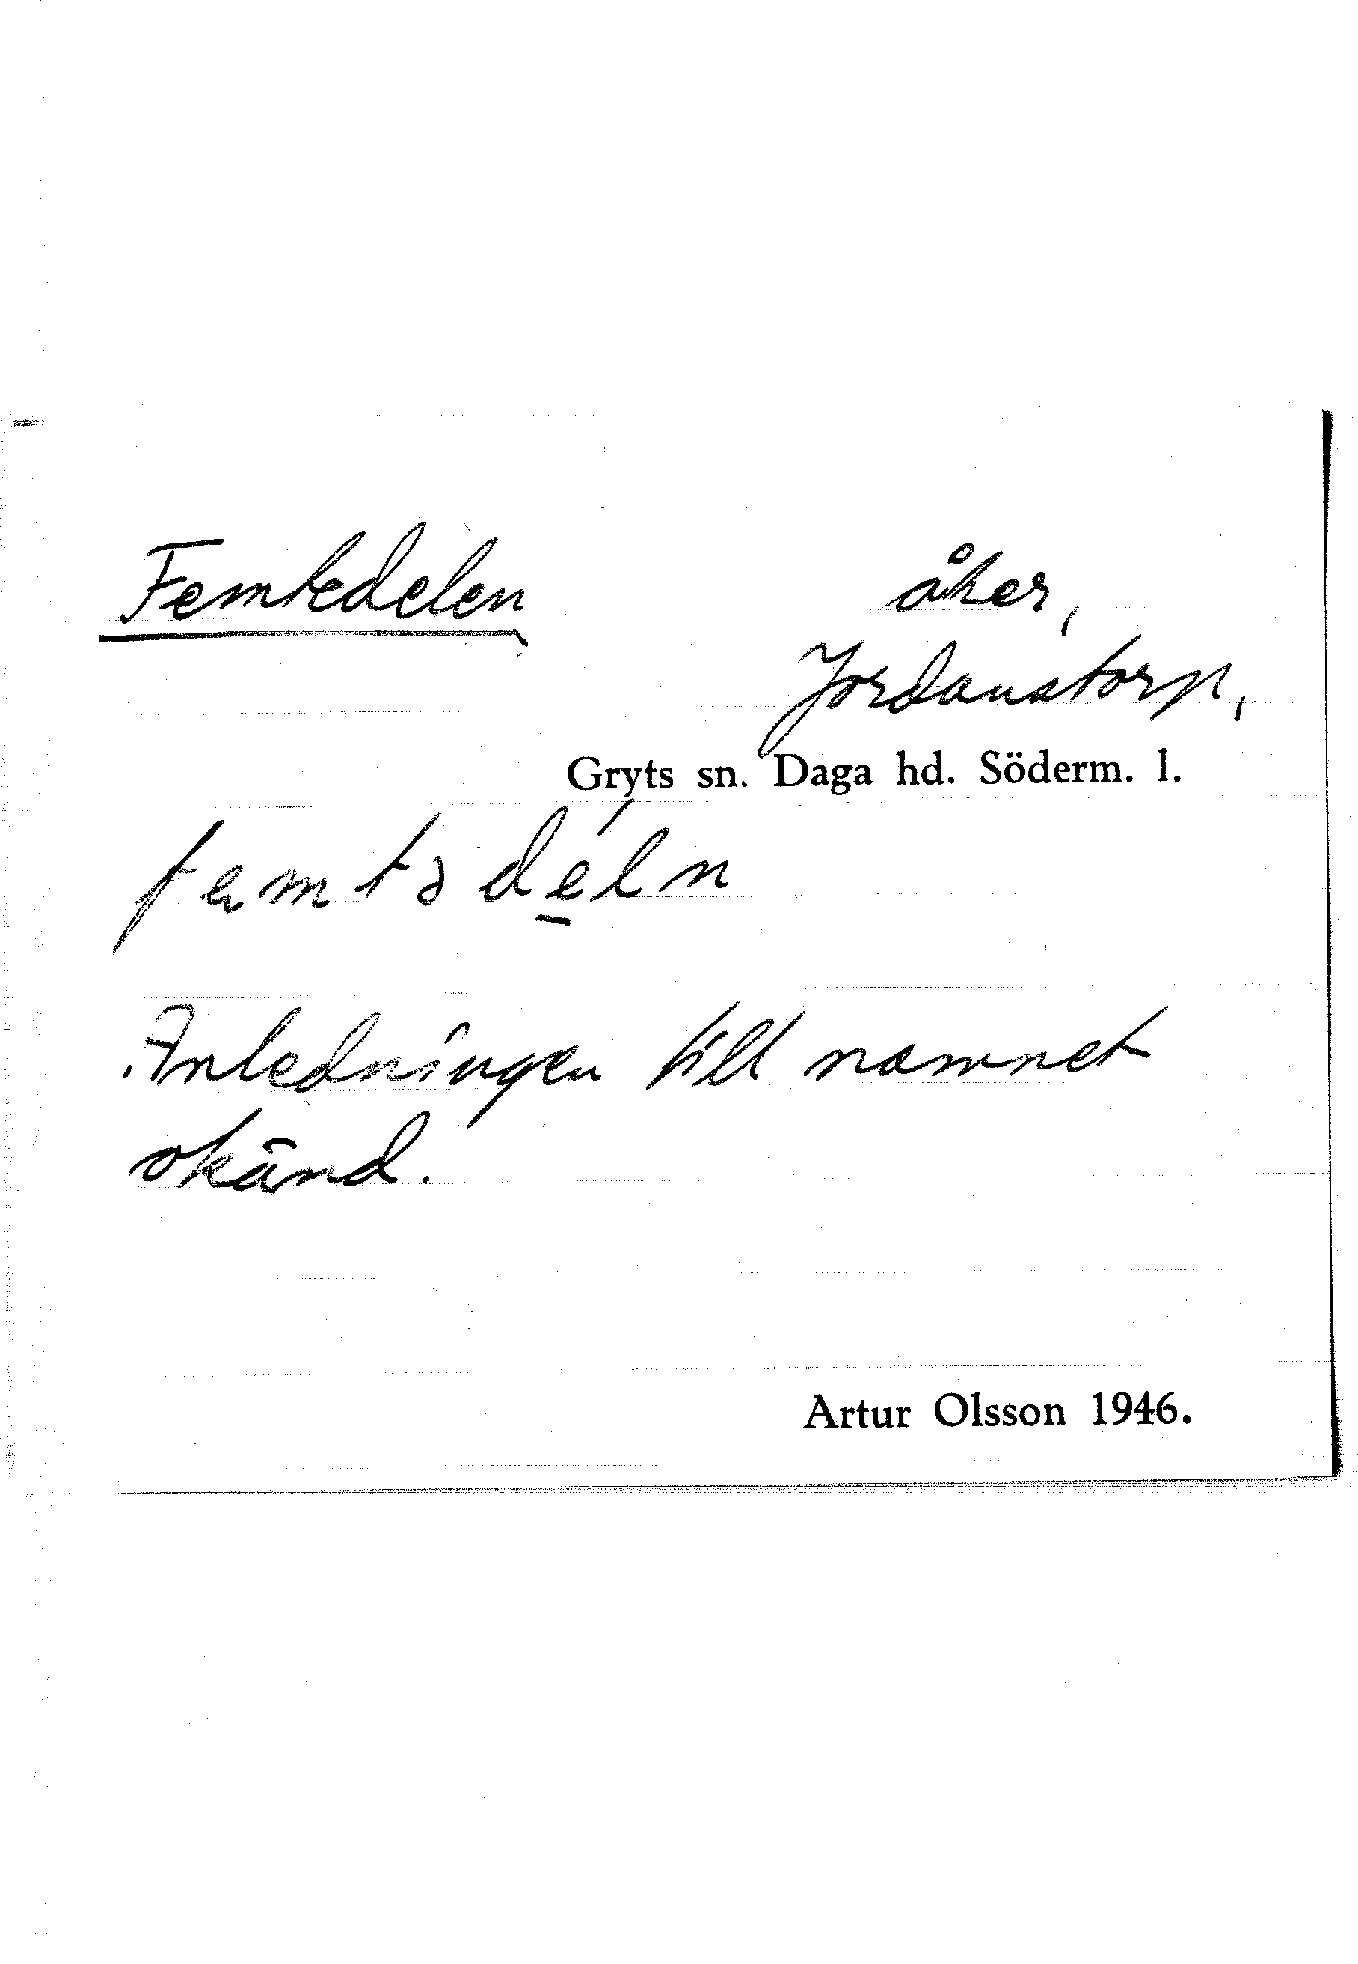 Femtedelen
åker,
Jordanstorp,
Gryts sn. Daga hd. Söderm. l.
femtədé̱ln
Anledningen till namnet
okänd.
Artur Olsson 1946.